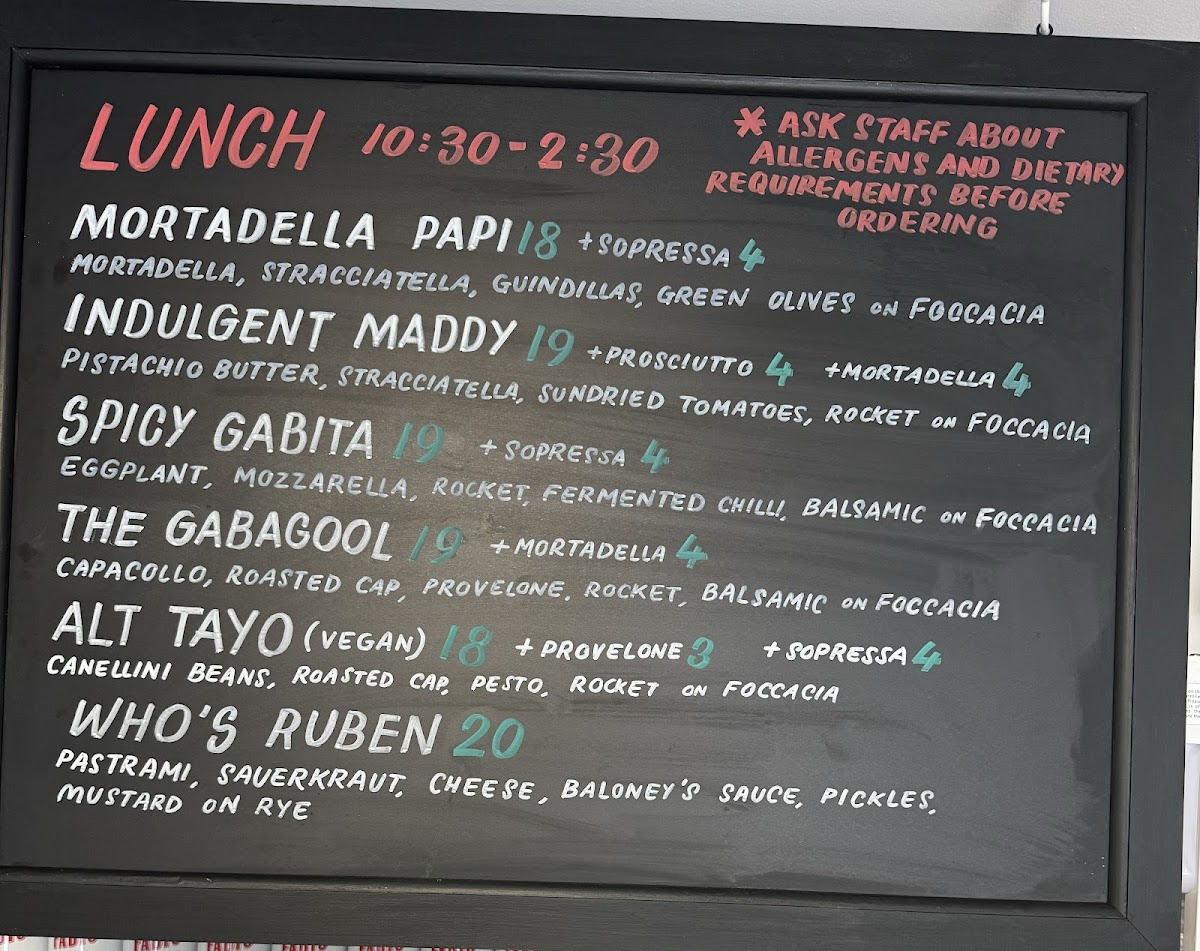 LUNCH 10:30-2:30
* ASK STAFF ABOUT
ALLERGENS AND DIETARY
REQUIREMENTS BEFORE
ORDERING
MORTADELLA PAPI 18 +SOPRESSA 4
MORTADELLA, STRACCIATELLA, GUINDILLAS, GREEN OLIVES ON FOCCACIA
INDULGENT MADDY 19 +PROSCIUTTO 4 +MORTADELLA 4
PISTACHIO BUTTER, STRACCIATELLA, SUNDRIED TOMATOES, ROCKET ON FOCCACIA
SPICY GABITA 19 + SOPRESSA 4
EGGPLANT, MOZZARELLA, ROCKET, FERMENTED CHILLI, BALSAMIC ON FOCCACIA
THE GABAGOOL 19 +MORTADELLA 4
CAPACOLLO, ROASTED CAP, PROVELONE, ROCKET, BALSAMIC ON FOCCACIA
ALT TAYO (VEGAN) 18 + PROVELONE 3 + SOPRESSA 4
CANELLINI BEANS, ROASTED CAP, PESTO, ROCKET ON FOCCACIA
WHO'S RUBEN 20
PASTRAMI, SAUERKRAUT, CHEESE, BALONEY'S SAUCE, PICKLES,
MUSTARD ON RYE